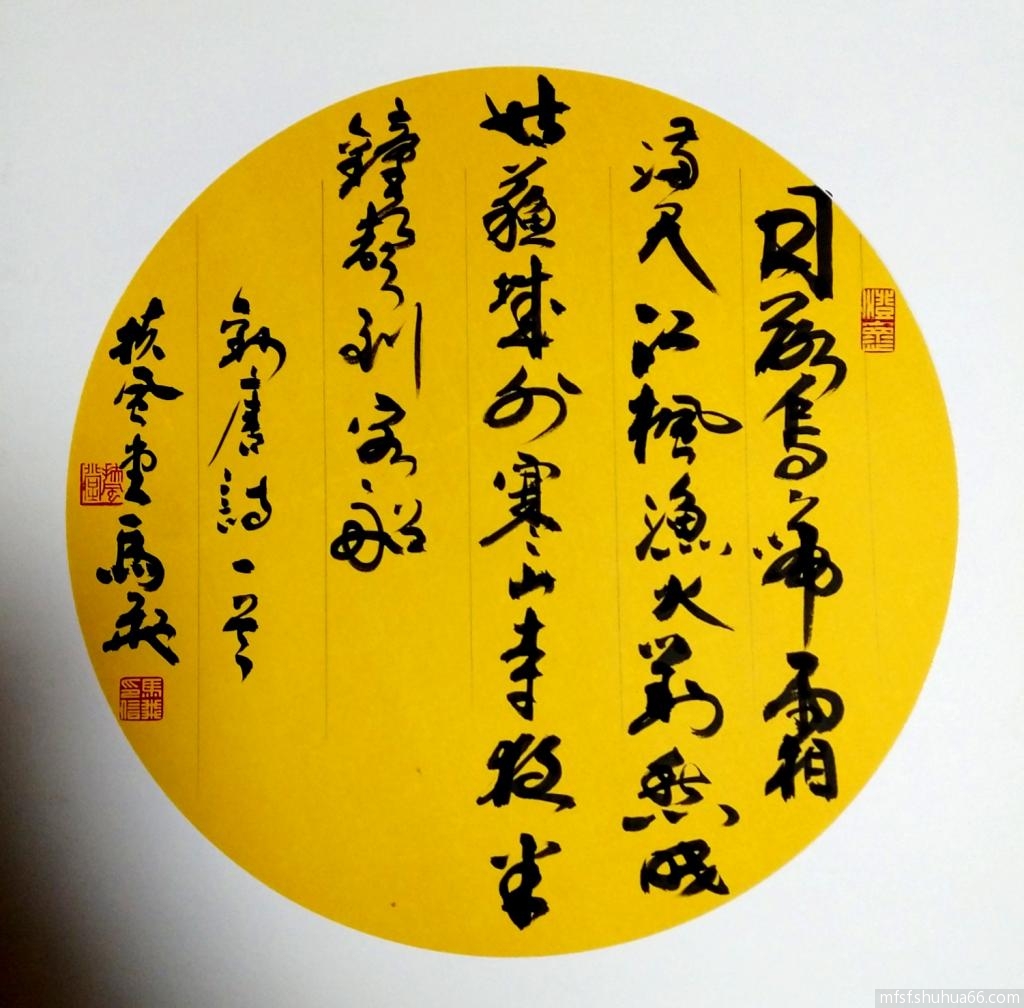 月落烏啼霜
滿天江楓漁火對愁眠
姑蘇城外寒山寺夜半
鐘聲到客船
唐詩一首
扶風堂馬飛
馬飛印信
mfsf.shuhua66.com